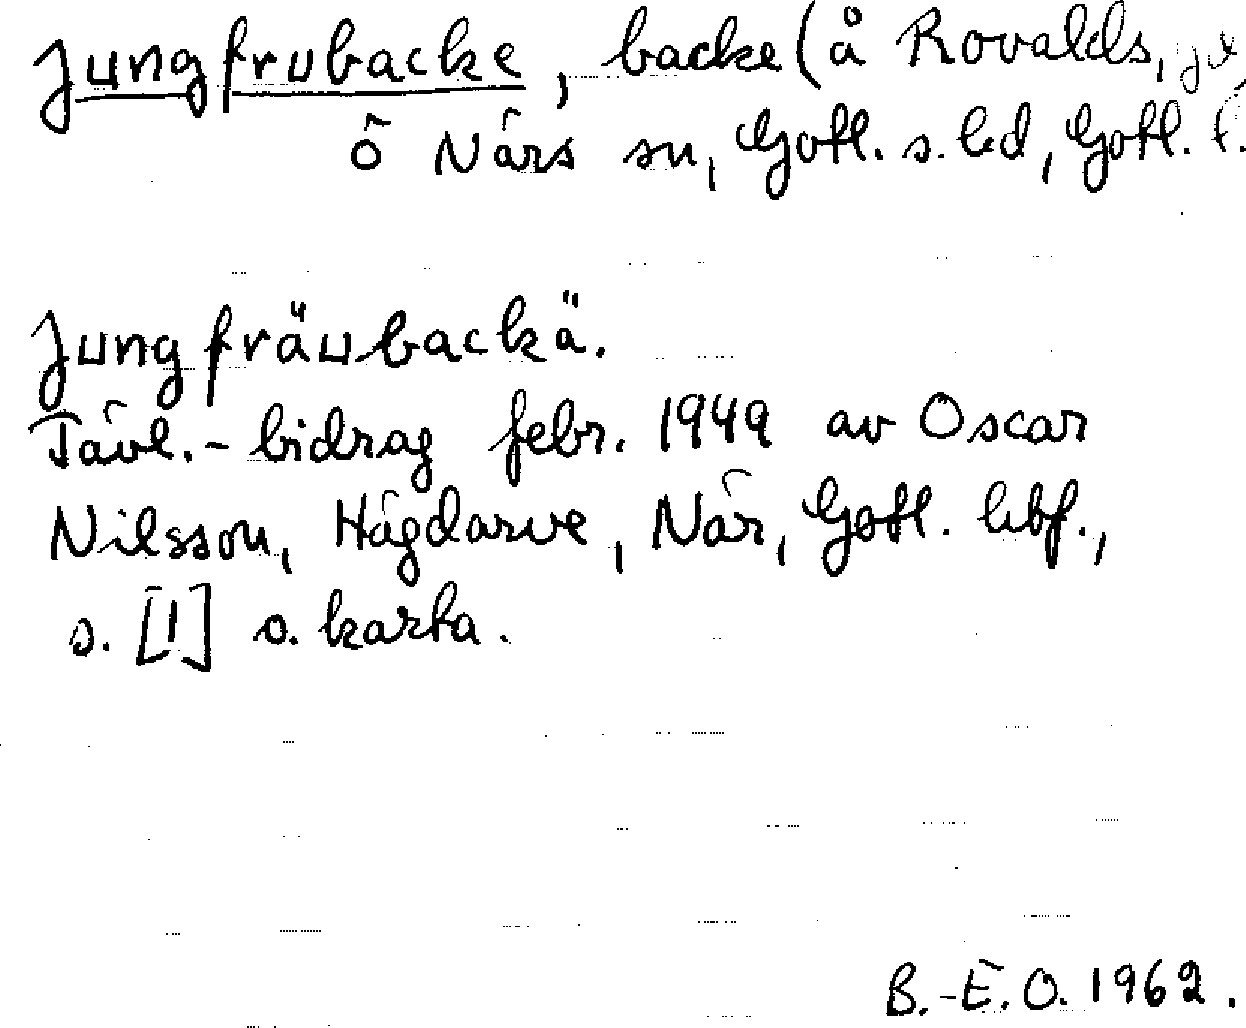 Jungfrubacke, backe (å Rovalds,
ö När s sn, Gotl. s. hd, Gotl. l.
Jungfräubackä.
Tävl.-bidrag febr. 1949 av Oscar
Nilsson, Hägdarve, När, Gotl. hbf.,
s. [1] o. karta.
B.-E.O. 1962.